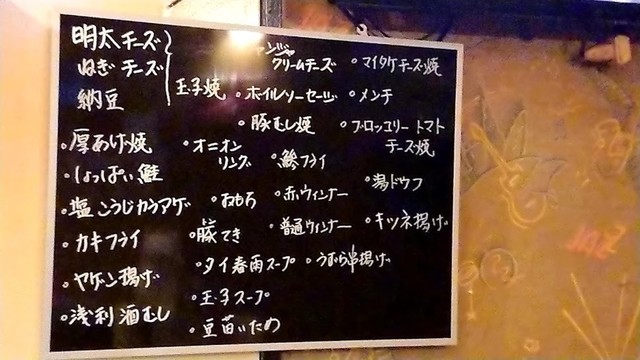 明太チーズ
ねぎチーズ
納豆
玉子焼
・厚あげ焼
・しょっぱい鮭
・塩こうじカラアゲ
・カキフライ
・ヤゲン揚げ
・浅利酒むし
ャンジャ
クリームチーズ
・ボイルソーセージ
・豚むし焼
・オニオン
リング
・鯵フライ
・おもろ
・赤ウィンナー
・豚てき
・普通ウィンナー
・タイ春雨スープ
・うずら串揚げ
・玉子スープ
・豆苗いため
・マイタケチーズ焼
・メンチ
・ブロッコリートマト
チーズ焼
・湯ドウフ
・キツネ揚げ